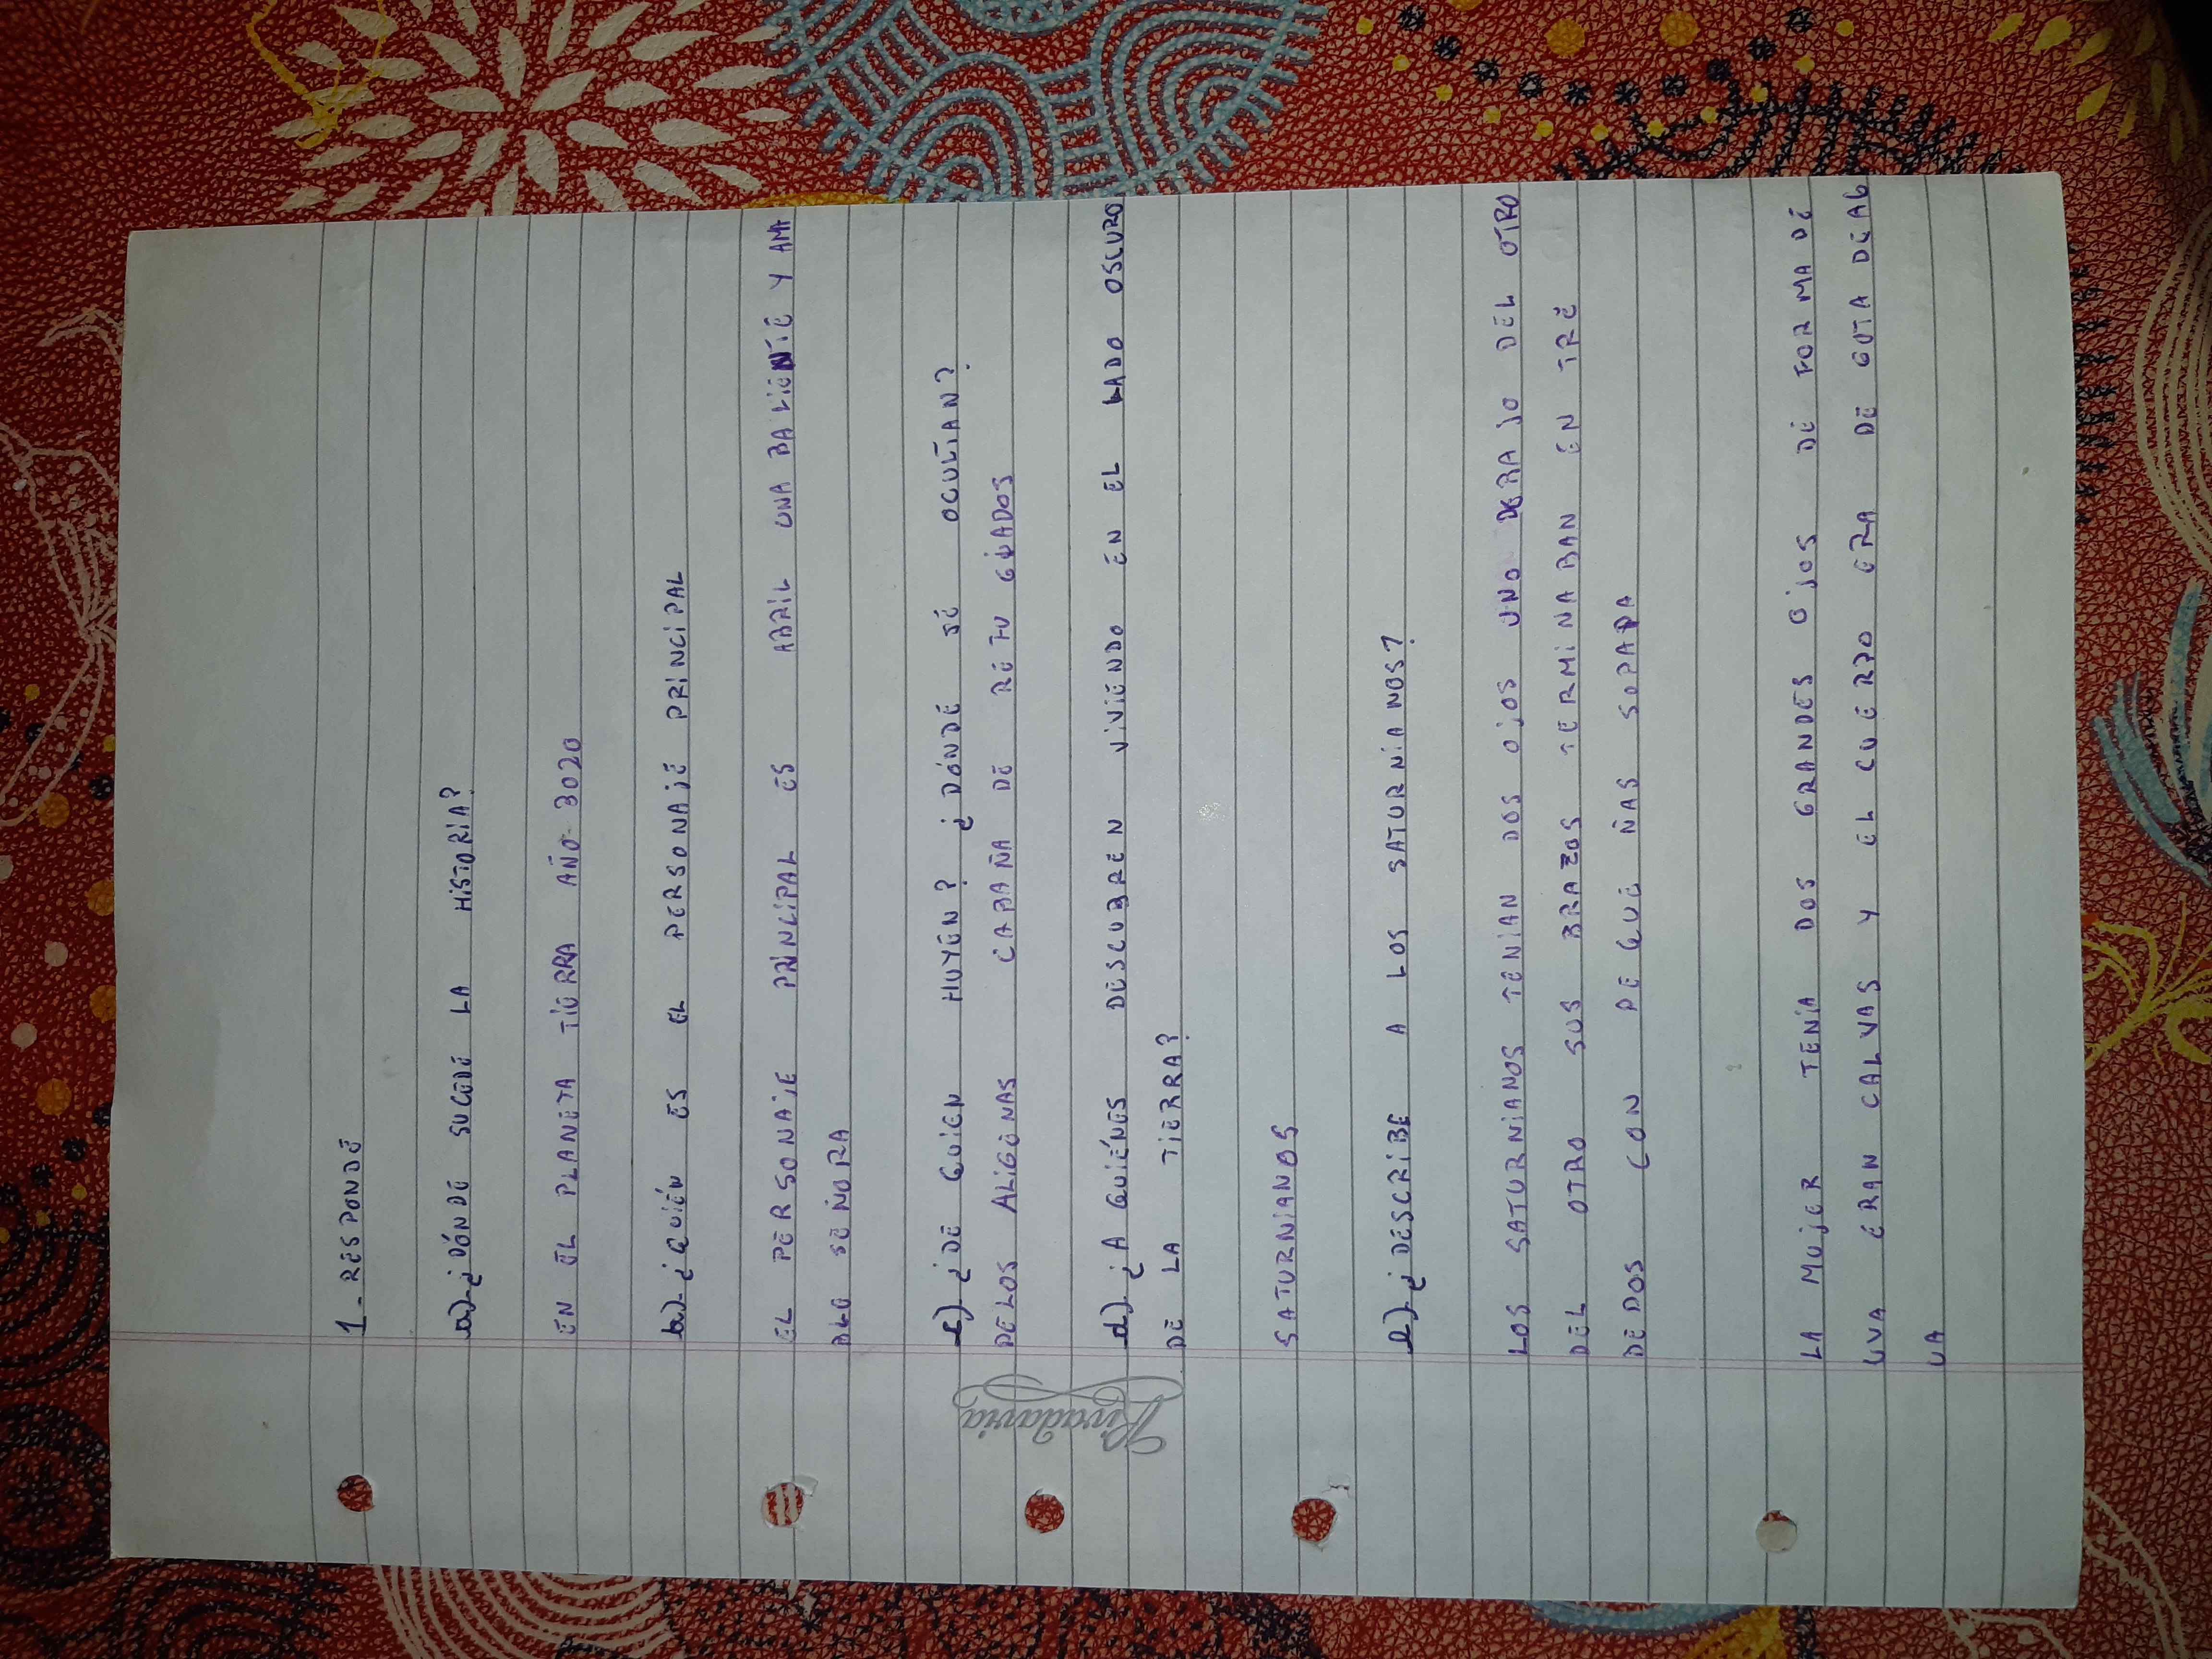 1-RESPONDÉ
a)-¿DÓNDE SUCEDE LA HISTORIA?
EN EL PLANETA TIERRA AÑO 3020
b)-¿QUIÉN ES EL PERSONAJE PRINCIPAL
EL PERSONAJE PRINCIPAL ES ABRIL UNA BALIENTE Y AMA
BLE SEÑORA
c)-¿DE QUIEN HUYEN? ¿DÓNDE SE OCULTAN?
DELOS ALIGENAS CABAÑA DE RETUGIADOS
d)-¿A QUIÉNES DESCUBREN VIVIENDO EN EL LADO OSCURO
DE LA TIERRA?
SATURNIANOS
e)-¿DESCRIBE A LOS SATURNIANOS?
LOS SATURNIANOS TENIAN DOS OJOS UNO DEBAJO DEL OTRO
DEL OTRO SUS BRAZOS TERMINABAN EN TRE
DEDOS CON PEQUEÑAS SOPAPA
LA MUJER TENIA DOS GRANDES OJOS DE FORMA DE
UVA ERAN CALVAS Y EL CUERPO ERA DE GOTA DE AG
UA
Rivadavia